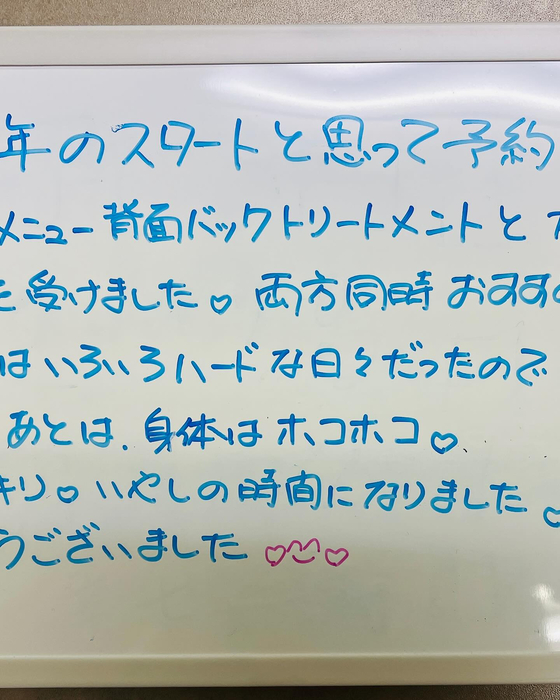 年のスタートと思って予約
メニュー背面バックトリートメントと
を受けました♡ 両方同時 おすすめ
はいろいろハードな日々だったので
あとは、身体はホコホコ♡、
キリ♡いやしの時間になりました♡
うございました ♡♡